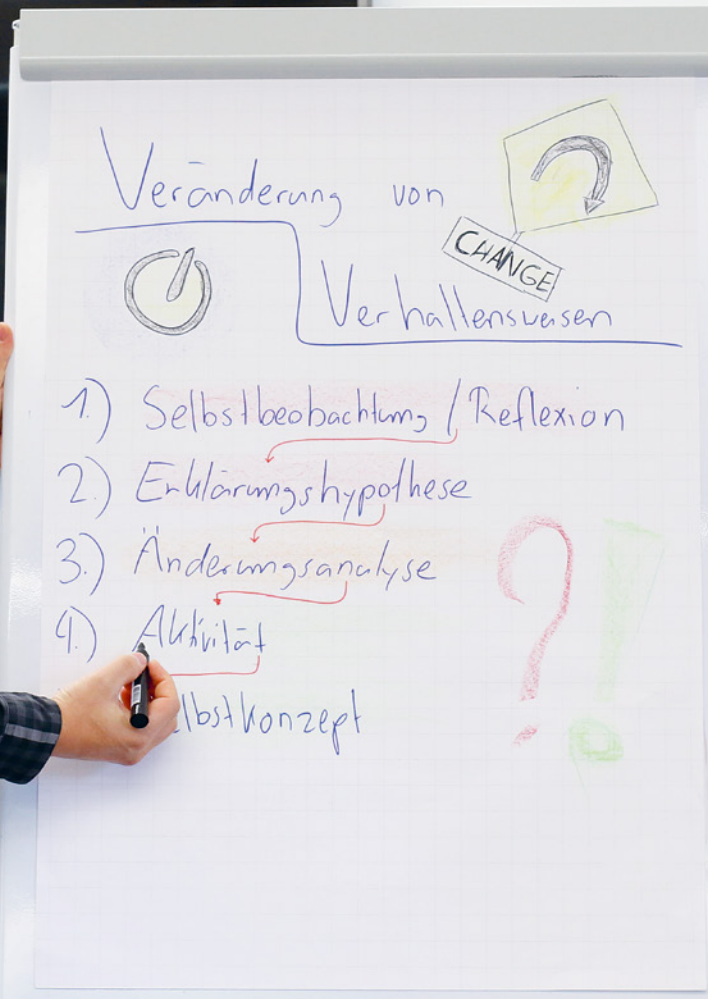 Veränderung von
CHANGE
Verhaltensweisen
1.) Selbstbeobachtung / Reflexion
2.) Erklärungshypothese
3.) Änderungsanalyse
4.) Aktivität
elbstkonzept
? !